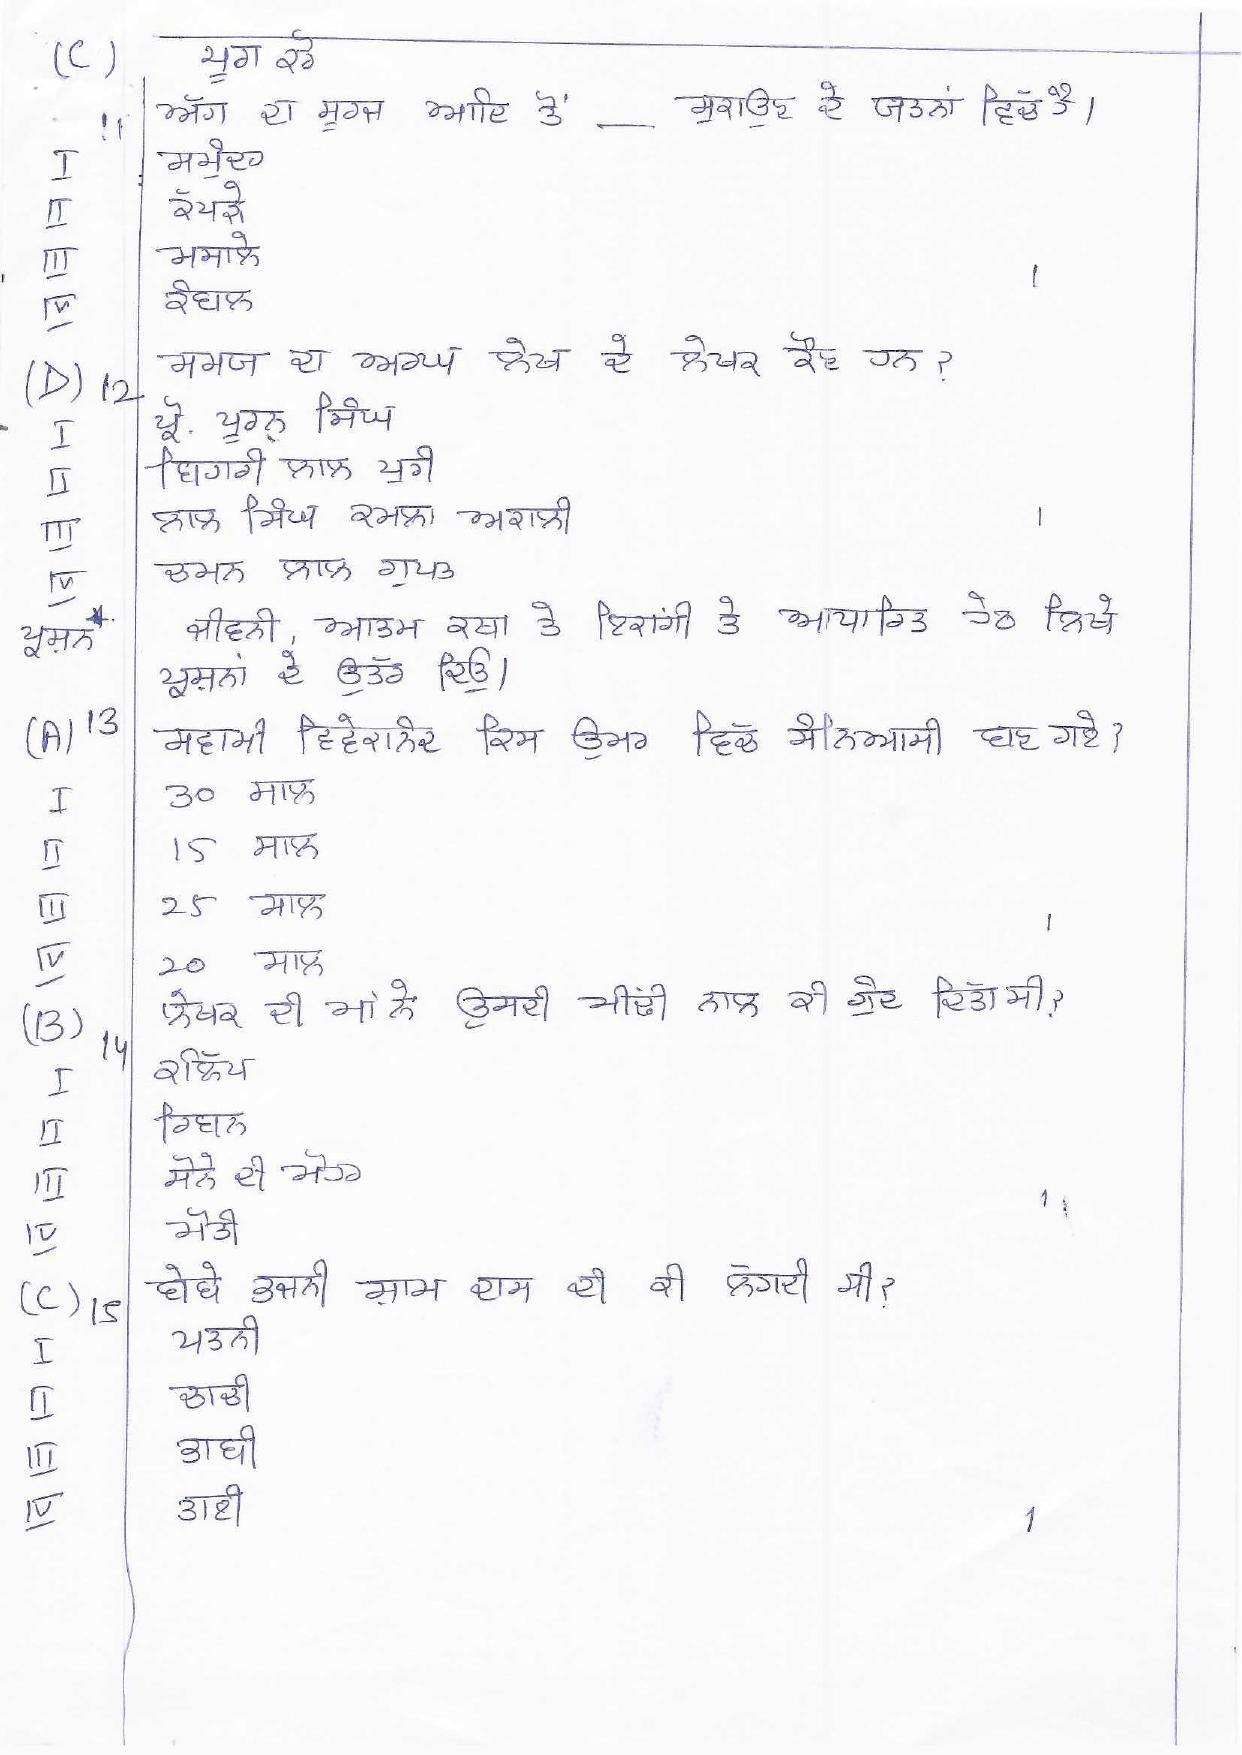 (C) ਪੂਰਾ ਕਰੋ
11 ਅੱਗ ਦਾ ਸੂਰਜ ਆਦਿ ਤੋਂ ___ ਸੁਕਾਉਣ ਦੇ ਯਤਨਾਂ ਵਿੱਚ ਹੈ।
I ਸਮੁੰਦਰ
II ਕੱਪੜੇ
III ਮਸਾਲੇ
IV ਕੰਬਲ
(D) 12 ਸਮਯ ਦਾ ਅਰਘ ਲੇਖ ਦੇ ਲੇਖਕ ਕੌਣ ਹਨ?
I ਪ੍ਰੋ. ਪੂਰਨ ਸਿੰਘ
II ਬਿਹਾਰੀ ਲਾਲ ਪੁਰੀ
III ਲਾਲ ਸਿੰਘ ਕਮਲਾ ਅਕਾਲੀ
IV ਚਮਨ ਲਾਲ ਗੁਪਤ
ਪ੍ਰਸ਼ਨ ਜੀਵਨੀ, ਆਤਮ ਕਥਾ ਤੇ ਇਕਾਂਗੀ ਤੇ ਆਧਾਰਿਤ ਹੇਠ ਲਿਖੇ
ਪ੍ਰਸ਼ਨਾਂ ਦੇ ਉਤੱਰ ਦਿਉ।
(A) 13 ਸਵਾਮੀ ਵਿਵੇਕਾਨੰਦ ਕਿਸ ਉਮਰ ਵਿੱਚ ਸੰਨਿਆਸੀ ਬਣ ਗਏ?
I 30 ਸਾਲ
II 15 ਸਾਲ
III 25 ਸਾਲ
IV 20 ਸਾਲ
(B) 14 ਲੇਖਕ ਦੀ ਮਾਂ ਨੇ ਉਸਦੀ ਮੀਢੀ ਨਾਲ ਕੀ ਗੁੰਦ ਦਿੱਤਾ ਸੀ?
I ਕਲਿੱਪ
II ਰਿਬਨ
III ਸੋਨੇ ਦੀ ਮੋਹਰ
IV ਮੋਤੀ
(C) 15 ਬੇਬੇ ਭਜਨੀ ਸ਼ਾਮ ਦਾਸ ਦੀ ਕੀ ਲੱਗਦੀ ਸੀ?
I ਪਤਨੀ
II ਚਾਚੀ
III ਭਾਬੀ
IV ਤਾਈ